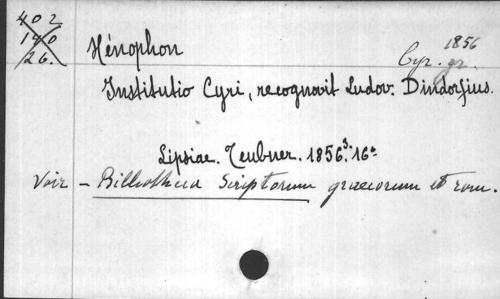 402
140
26.
Xénophon
1856
Cyr. gr.
Institutio Cyri, recognovit Ludov. Dindorfius.
Lipsiae. Teubner. 1856. 16°
Voir – Bibliotheca Scriptorum graecorum et rom.